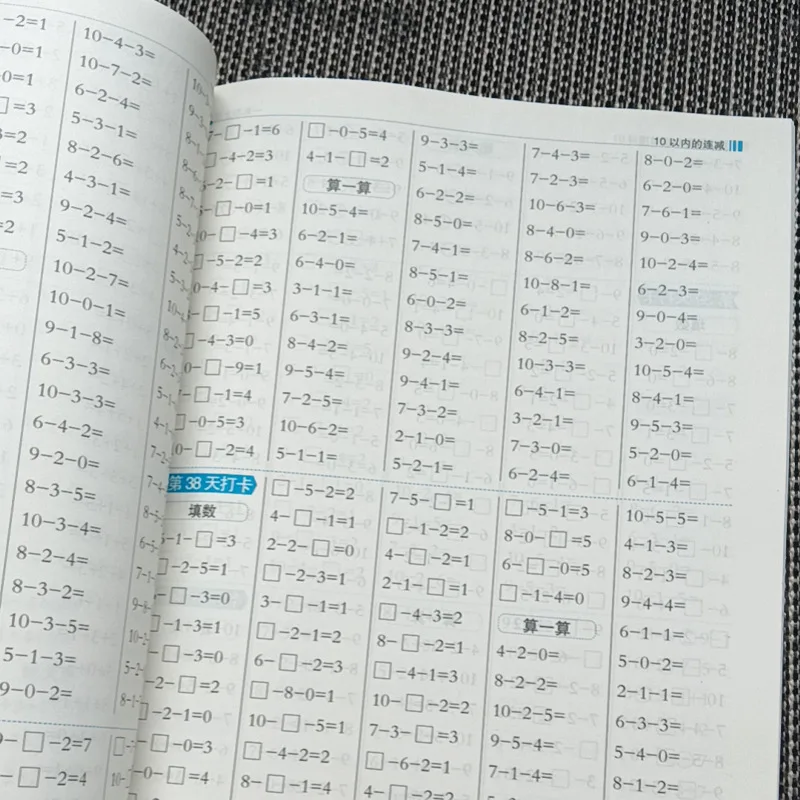 -2=1
-0=1
-0=1
□=3
3=2
□=2
=3
=2
10-4-3=
10-7-2=
6-2-4=
5-3-1=
8-2-6=
4-3-1=
9-2-4=
5-1-2=
10-2-7=
10-0-1=
9-1-8=
6-3-3=
10-3-3=
6-4-2=
9-2-0=
8-3-5=
10-3-4=
8-2-4=
8-3-2=
10-3-5=
5-1-3=
9-0-2=
9-□-2=7
-□-2=4
10以内的连减
7-□-1=6
□-4-2=3
-2-□=1
-□-0=1
10-□-4=3
□-5-2=2
0-4-□=3
-□-1=5
□-4-3=0
0-□-9=1
-□-1=4
□-0-5=3
10-□-2=4
□-0-5=4
4-1-□=2
算一算
10-5-4=
6-2-1=
6-4-0=
3-1-1=
6-3-1=
8-4-2=
9-5-4=
7-2-5=
10-6-2=
5-1-1=
9-3-3=
5-1-4=
6-2-2=
8-5-0=
7-4-1=
8-5-1=
6-0-2=
8-3-3=
9-2-4=
9-4-1=
7-3-2=
2-1-0=
5-2-1=
7-4-3=
7-2-3=
10-6-3=
8-4-0=
8-6-2=
10-8-1=
6-1-2=
8-2-5=
10-3-3=
6-4-1=
3-2-1=
7-3-0=
6-2-4=
8-0-2=
6-2-0=
7-6-1=
9-0-3=
10-2-4=
6-2-3=
9-0-4=
3-2-0=
10-5-4=
8-4-1=
9-5-3=
5-2-0=
6-1-4=
第38天打卡
填数
5-1-□=3
□-2-5=1
-□-3=0
□-1-3=1
-□-3=0
-2-□=2
□-2-1=0
-□-0=3
-0-□=4
□-5-2=2
4-□-1=1
2-2-□=0
□-2-3=1
3-□-1=1
□-2-1=2
6-□-2=3
□-8-0=1
10-□-5=1
□-4-2=2
8-□-1=4
7-5-□=1
□-1-2=2
4-□-2=1
2-1-□=1
□-4-3=2
8-□-2=1
□-4-1=3
10-□-2=2
7-3-□=3
□-6-2=1
4-□-2=2
□-5-1=3
8-0-□=5
6-□-0=5
□-1-4=0
算一算
4-2-0=
8-2-2=
10-2-5=
9-5-4=
7-1-4=
10-5-5=
4-1-3=
8-2-3=
9-4-4=
6-1-1=
5-0-2=
2-1-1=
6-3-3=
5-4-0=
8-1-2=